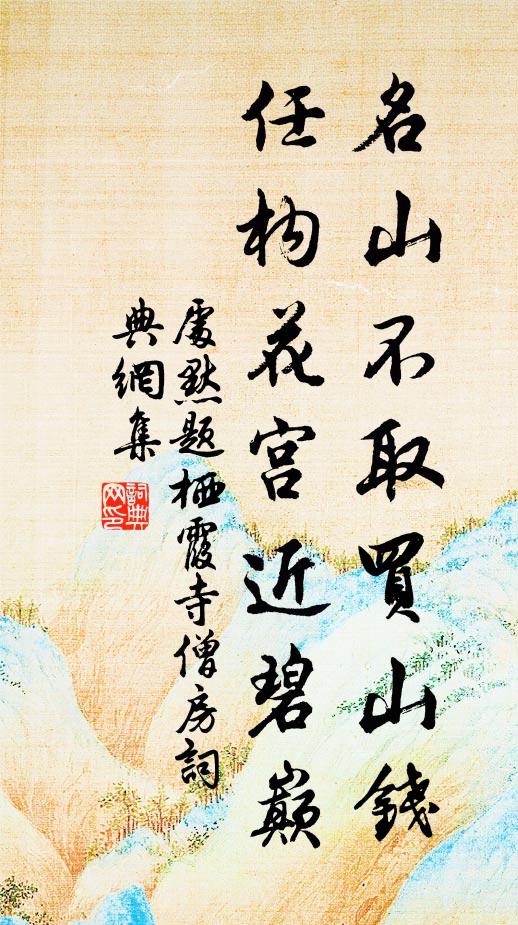 名山不取買山錢
任构花宮近碧巔
處默題栖霞寺僧房詞
典網集
詞典
网印